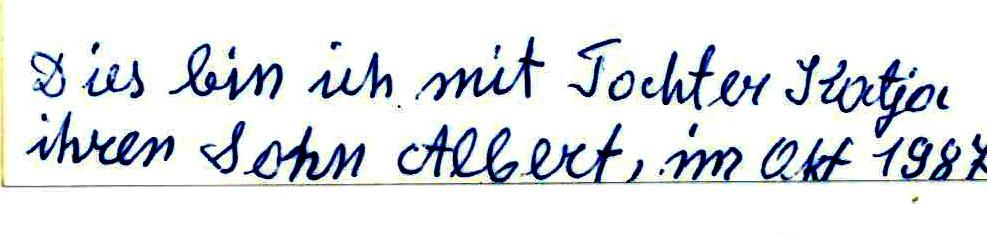 Dies bin ich mit Tochter Katja
ihren Sohn Albert, im Okt 1987